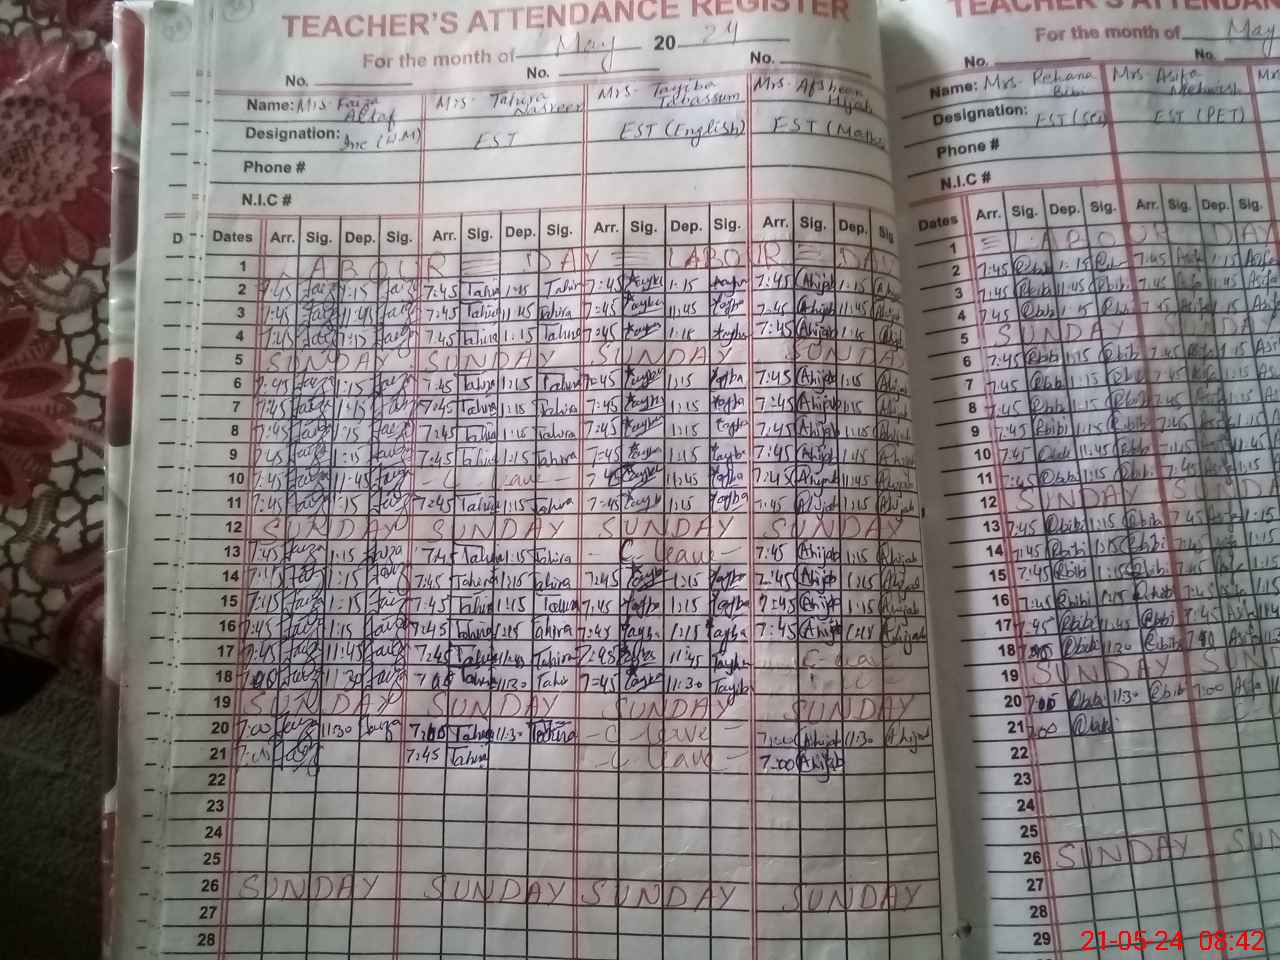 TEACHER'S ATTENDANCE REGISTER
For the month of May 20 24
No. No. No.
Name: Mrs. Faiza Altaf Mrs. Tahira Nasreen Mrs. Tayiba Tabassum Mrs. Afsheen Hijab
Designation: Inc (H.M) EST EST (English) EST (Maths
Phone #
N.I.C #
D Dates Arr. Sig. Dep. Sig. Arr. Sig. Dep. Sig. Arr. Sig. Dep. Sig. Arr. Sig. Dep. Sig.
1 LABOUR = DAY = LABOUR = DA
2 7:45 Faiz 1:15 Faiz 7:45 Tahira 1:15 Tahir 7:45 Tayba 1:15 Tayba 7:45 Ahijab 1:15
3 7:45 Faiz 11:45 Faiz 7:45 Tahira 11:45 Tahira 7:45 Tayba 11:45 Tayba 7:45 Ahijab 11:45 Ahijab
4 7:45 Faiz 1:15 Faiz 7:45 Tahira 1:15 Tahira 7:45 Tayba 1:15 Tayba 7:45 Ahijab 1:15
5 SUNDAY SUNDAY SUNDAY SUNDA
6 7:45 Faiz 1:15 Faiz 7:45 Tahira 1:15 Tahira 7:45 Tayba 1:15 Tayba 7:45 Ahijab 1:15 Ahijab
7 7:45 Faiz 1:15 Faiz 7:45 Tahira 1:15 Tahira 7:45 Tayba 1:15 Tayba 7:45 Ahijab 1:15 Ahijab
8 7:45 Faiz 1:15 Faiz 7:45 Tahira 1:15 Tahira 7:45 Tayba 1:15 Tayba 7:45 Ahijab 1:15 Ahijab
9 7:45 Faiz 1:15 Faiz 7:45 Tahira 1:15 Tahira 7:45 Tayba 1:15 Tayba 7:45 Ahijab 1:15 Ahijab
10 7:45 Faiz 11:45 Faiz - C leave - 7:45 Tayba 11:45 Tayba 7:45 Ahijab 11:45 Ahijab
11 7:45 Faiz 1:15 Faiz 7:45 Tahira 1:15 Tahira 7:45 Tayba 1:15 Tayba 7:45 Ahijab 1:15 Ahijab
12 SUNDAY SUNDAY SUNDAY SUNDAY
13 7:45 Faiza 1:15 Faiza 7:45 Tahira 1:15 Tahira - C leave - 7:45 Ahijab 1:15 Ahijab
14 Faiz 1:15 Faiz 7:45 Tahira 1:15 Tahira 7:45 Tayba 1:15 Tayba 7:45 Ahijab 1:15 Ahijab
15 7:15 Faiz 1:15 Faiz 7:45 Tahira 1:15 Tahira 7:45 Tayba 1:15 Tayba 7:45 Ahijab 1:15 Ahijab
16 7:45 Faiz 1:15 Faiz 7:45 Tahira 1:15 Tahira 7:45 Tayba 1:15 Tayba 7:45 Ahijab 1:15 Ahijab
17 7:45 Faiz 11:45 Faiz 7:45 Tahira 11:45 Tahira 7:45 11:45 Tayba C-leave
18 7:00 Faiz 11:30 Faiz 7:00 Tahira 11:30 Tahir 7:45 Tayba 11:30 Tayib
19 SUNDAY SUNDAY SUNDAY SUNDAY
20 7:00 Faiz 11:30 Faiza 7:00 Tahira 11:30 Tahira - C leave - 7:00 Ahijab 11:30 Ahijab
21 7:00 Faiz 7:45 Tahira - C leave - 7:00 Ahijab
22
23
24
25
26 SUNDAY SUNDAY SUNDAY SUNDAY
27
28
TEACHER'S ATTENDAN
For the month of May
No. No.
Name: Mrs. Rehana Bibi Mrs. Asifa Mehwish Mr
Designation: EST (Sci) EST (PET)
Phone #
N.I.C #
Dates Arr. Sig. Dep. Sig. Arr. Sig. Dep. Sig.
1 = LABOUR DAY
2 7:45 @bibi 1:15 7:45 Asifa 1:15 Asifa
3 7:45 @bibi 11:45 @bibi
4 7:45 @bibi 1:15 @bibi 7:45
5 SUNDAY SUNDAY
6 7:45 @bibi 1:15 @bibi 7:45 1:15
7 7:45 @bibi 1:15 @bibi 7:45 1:15
8 7:45 @bibi 1:15 @bibi 7:45
9 7:45 @bibi 1:15 @bibi 7:45
10 7:45 11:45 @bibi 7:45
11 7:45 @bibi 1:15 @bibi 7:45
12 SUNDAY SUNDA
13 7:45 @bibi 1:15 @bibi 7:45
14 7:45 @bibi 1:15 @bibi 7:45
15 7:45 @bibi 1:15 @bibi 7:45
16 7:45 @bibi 1:15 @bibi 7:45
17 7:45 @bibi 11:45 @bibi 7:45
18 7:00 @bibi 11:30 @bibi 7:00
19 SUNDAY SUN
20 7:00 @bibi 11:30 @bibi 7:00 Asifa 11
21 7:00 @bibi
22
23
24
25
26 SUNDAY SUN
27
28
29
21-05-24 08:42